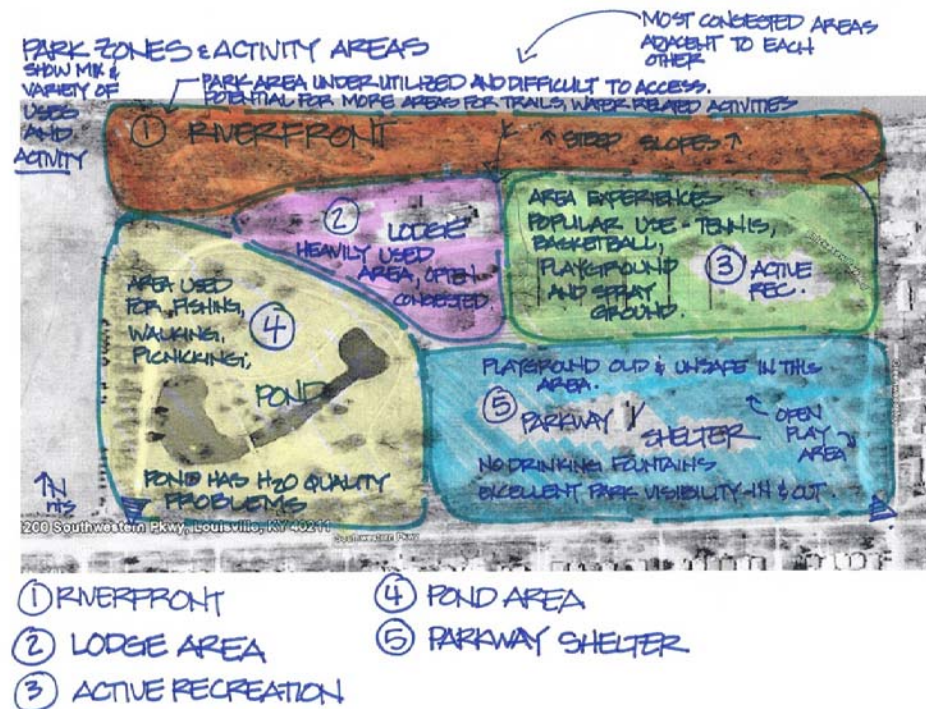 PARK ZONES & ACTIVITY AREAS
SHOW MIX &
VARIETY OF
USES
AND
ACTIVITY
MOST CONGESTED AREAS
ADJACENT TO EACH
OTHER
PARK AREA UNDERUTILIZED AND DIFFICULT TO ACCESS.
POTENTIAL FOR MORE AREAS FOR TRAILS, WATER RELATED ACTIVITIES
① RIVERFRONT
↑ STEEP SLOPES ↑
②
LODGE
HEAVILY USED
AREA, OFTEN
CONGESTED.
AREA EXPERIENCES
POPULAR USE - TENNIS,
BASKETBALL,
PLAYGROUND
AND SPRAY
GROUND.
③ ACTIVE
REC.
AREA USED
FOR FISHING,
WALKING,
PICNICKING,
④
POND
POND HAS H2O QUALITY
PROBLEMS
PLAYGROUND OLD & UNSAFE IN THIS
AREA.
⑤ PARKWAY
SHELTER
OPEN
PLAY
AREA
NO DRINKING FOUNTAINS
EXCELLENT PARK VISIBILITY-IN & OUT.
N
NTS
200 Southwestern Pkwy, Louisville, KY 40211
Southwestern Pkwy
① RIVERFRONT
② LODGE AREA
③ ACTIVE RECREATION
④ POND AREA
⑤ PARKWAY SHELTER